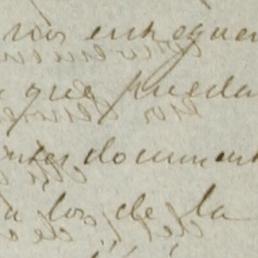 nos entreguen
que pueda
ntes document
a los de la